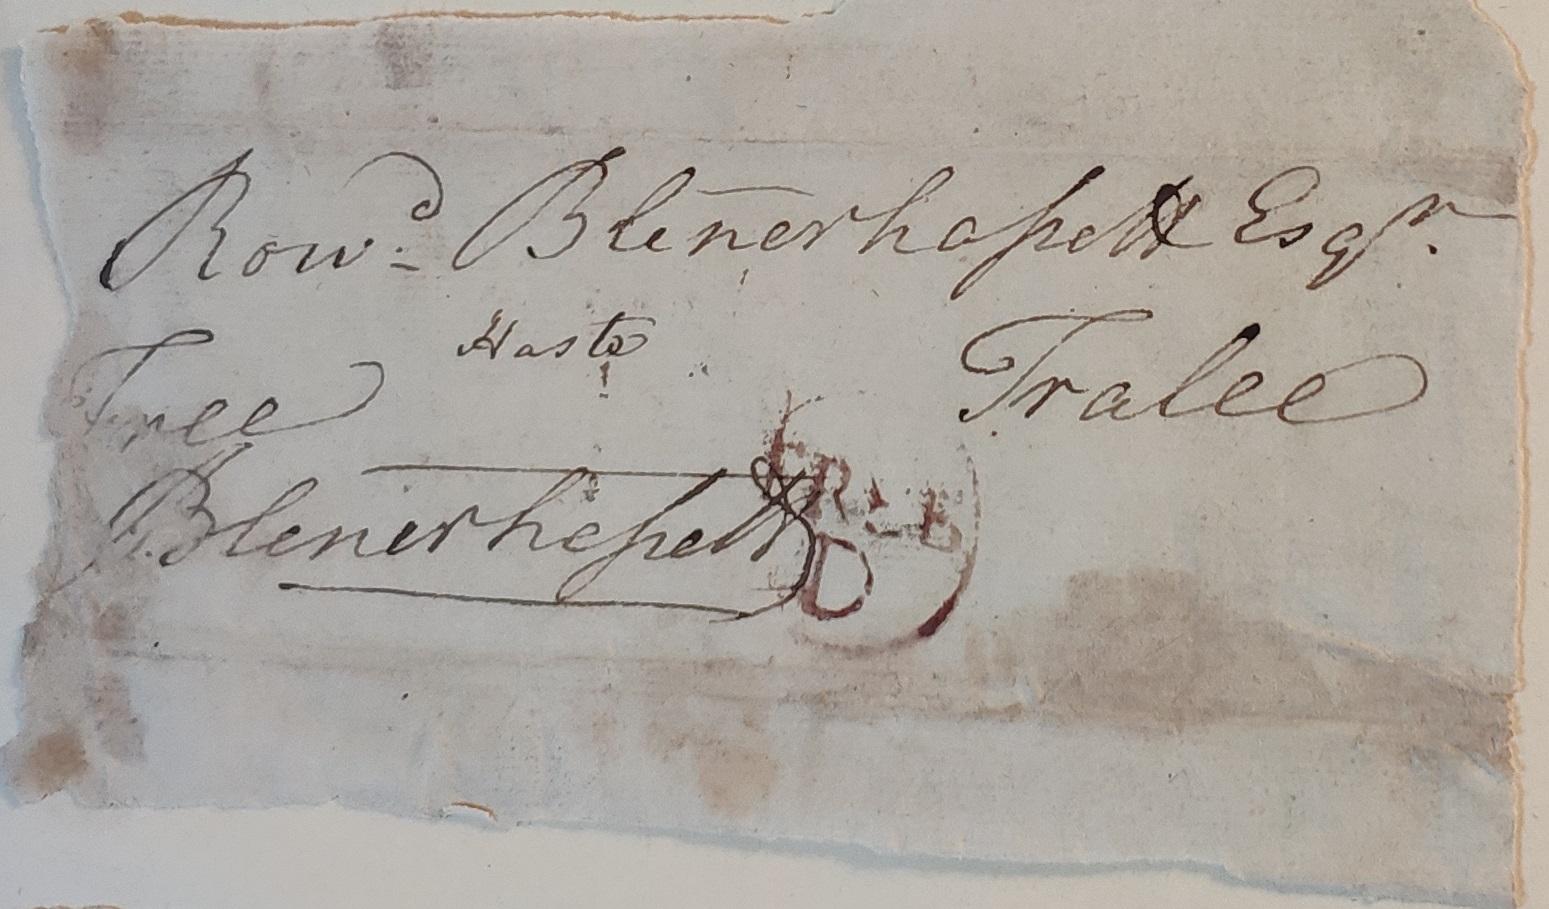 Row.d Blenerhassett Esqr.
Haste
Free
Tralee
Blenerhassett
D